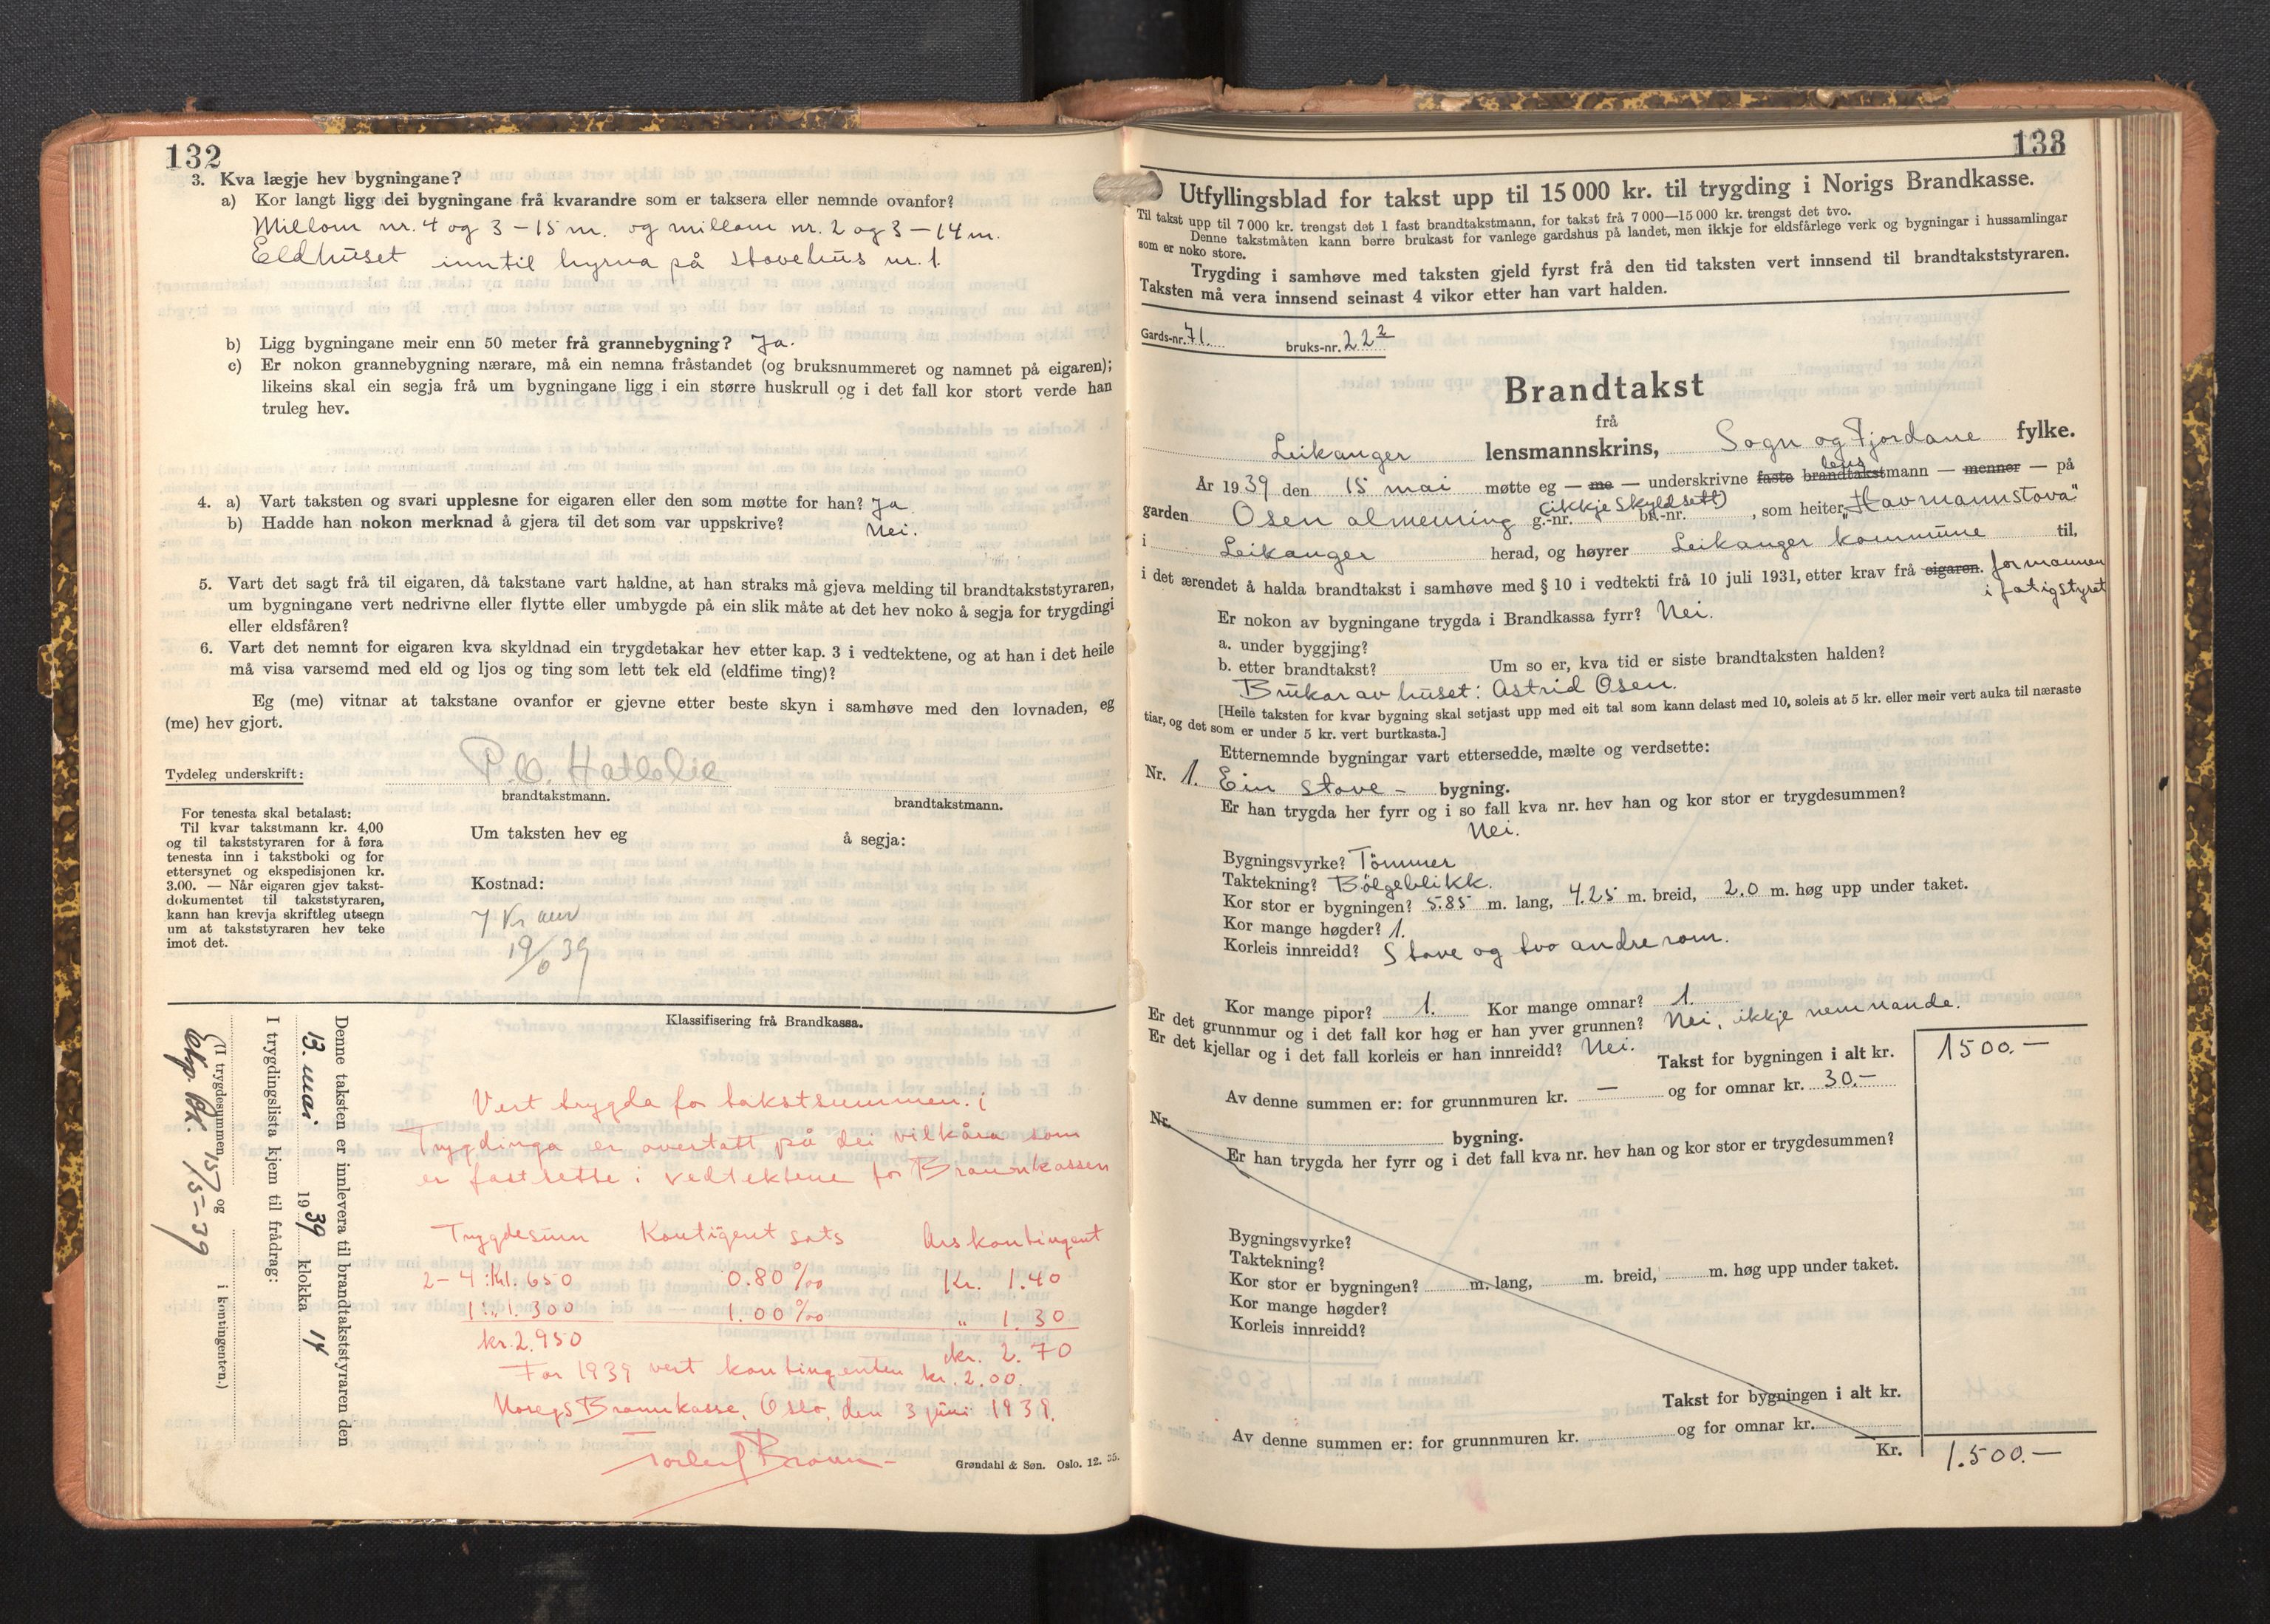 132
3. Kva lægje hev bygningane?
a) Kor langt ligg dei bygningane frå kvarandre som er taksera eller nemnde ovanfor?
Millom nr. 4 og 3 – 15 m. og millom nr. 2 og 3 – 14 m.
Eldhuset inntil hyrna på stovehus nr. 1.
b) Ligg bygningane meir enn 50 meter frå grannebygning? Ja.
c) Er nokon grannebygning nærare, må ein nemna fråstandet (og bruksnummeret og namnet på eigaren);
likeins skal ein segja frå um bygningane ligg i ein større huskrull og i det fall kor stort verde han
truleg hev.
4. a) Vart taksten og svari upplesne for eigaren eller den som møtte for han? Ja
b) Hadde han nokon merknad å gjera til det som var uppskrive? Nei.
5. Vart det sagt frå til eigaren, då takstane vart haldne, at han straks må gjeva melding til brandtakststyraren,
um bygningane vert nedrivne eller flytte eller umbygde på ein slik måte at det hev noko å segja for trygdingi
eller eldsfåren?
6. Vart det nemnt for eigaren kva skyldnad ein trygdetakar hev etter kap. 3 i vedtektene, og at han i det heile
må visa varsemd med eld og ljos og ting som lett tek eld (eldfime ting)?
Eg (me) vitnar at takstane ovanfor er gjevne etter beste skyn i samhøve med den lovnaden, eg
(me) hev gjort.
Tydeleg underskrift: P.O. Hatlelie
brandtakstmann. brandtakstmann.
For tenesta skal betalast:
Til kvar takstmann kr. 4,00
og til takststyraren for å føra
tenesta inn i takstboki og for
ettersynet og ekspedisjonen kr.
3.00. — Når eigaren gjev takst-
dokumentet til takststyraren,
kann han krevja skriftleg utsegn
um at takststyraren hev teke
imot det.
Um taksten hev eg å segja:
Kostnad:
7 Kr
19/6 39
Denne taksten er innlevera til brandtakststyraren den
13. mai. 1939 klokka 14
I trygdingslista kjem til frådrag:
(I trygdesummen og i kontingenten.)
15/5-39
Klassifisering frå Brandkassa.
Vert trygda for takstsummen. i
Trygdinga er overtatt på dei vilkåra som
er fastsette i vedtektene for Brannkassen
Trygdesum Kontigent sats Årskontingent
2–4: Kl. 650 0.80 ‰ Kr. 1.40
1: „ 1.300 1.00 ‰ „ 1.30
kr. 2.950 kr. 2.70
For 1939 vert kontingenten kr. 2.00.
Noregs Brannkasse, Oslo, den 3 juni 1939.
Grøndahl & Søn. Oslo. 12. 35.
133
Utfyllingsblad for takst upp til 15 000 kr. til trygding i Norigs Brandkasse.
Til takst upp til 7 000 kr. trengst det 1 fast brandtakstmann, for takst frå 7 000—15 000 kr. trengst det tvo.
Denne takstmåten kann berre brukast for vanlege gardshus på landet, men ikkje for eldsfårlege verk og bygningar i hussamlingar
som er noko store.
Trygding i samhøve med taksten gjeld fyrst frå den tid taksten vert innsend til brandtakststyraren.
Taksten må vera innsend seinast 4 vikor etter han vart halden.
Gards-nr. 71. bruks-nr. 22²
Brandtakst
frå
Leikanger lensmannskrins, Sogn og Fjordane fylke.
År 1939 den 15 mai møtte eg — me — underskrivne faste brandtakst lensmann — menner — på
garden Osen almenning g.-nr. (ikkje skyldsett) br.-nr. , som heiter „Havmannstova"
i Leikanger herad, og høyrer Leikanger kommune til,
i det ærendet å halda brandtakst i samhøve med § 10 i vedtekti frå 10 juli 1931, etter krav frå eigaren. formannen
i fatigstyret
Er nokon av bygningane trygda i Brandkassa fyrr? Nei.
a. under byggjing?
b. etter brandtakst? Um so er, kva tid er siste brandtaksten halden?
Brukar av huset: Astrid Osen.
[Heile taksten for kvar bygning skal setjast upp med eit tal som kann delast med 10, soleis at 5 kr. eller meir vert auka til næraste
tiar, og det som er under 5 kr. vert burtkasta.]
Etternemnde bygningar vart ettersedde, mælte og verdsette:
Nr. 1. Ein stove – bygning.
Er han trygda her fyrr og i so fall kva nr. hev han og kor stor er trygdesummen?
Nei.
Bygningsvyrke? Tömmer
Taktekning? Bölgeblikk.
Kor stor er bygningen? 5.85 m. lang, 4.25 m. breid, 2.0 m. høg upp under taket.
Kor mange høgder? 1.
Korleis innreidd? Stove og tvo andre rom.
Kor mange pipor? 1. Kor mange omnar? 1.
Er det grunnmur og i det fall kor høg er han yver grunnen? Nei, ikkje nemnande.
Er det kjellar og i det fall korleis er han innreidd? Nei.
Takst for bygningen i alt kr. 1500.—
Av denne summen er: for grunnmuren kr. — og for omnar kr. 30.—
Nr. bygning.
Er han trygda her fyrr og i det fall kva nr. hev han og kor stor er trygdesummen?
Bygningsvyrke?
Taktekning?
Kor stor er bygningen? m. lang, m. breid, m. høg upp under taket.
Kor mange høgder?
Korleis innreidd?
Takst for bygningen i alt kr.
Av denne summen er: for grunnmuren kr. og for omnar kr.
Kr. 1.500.—